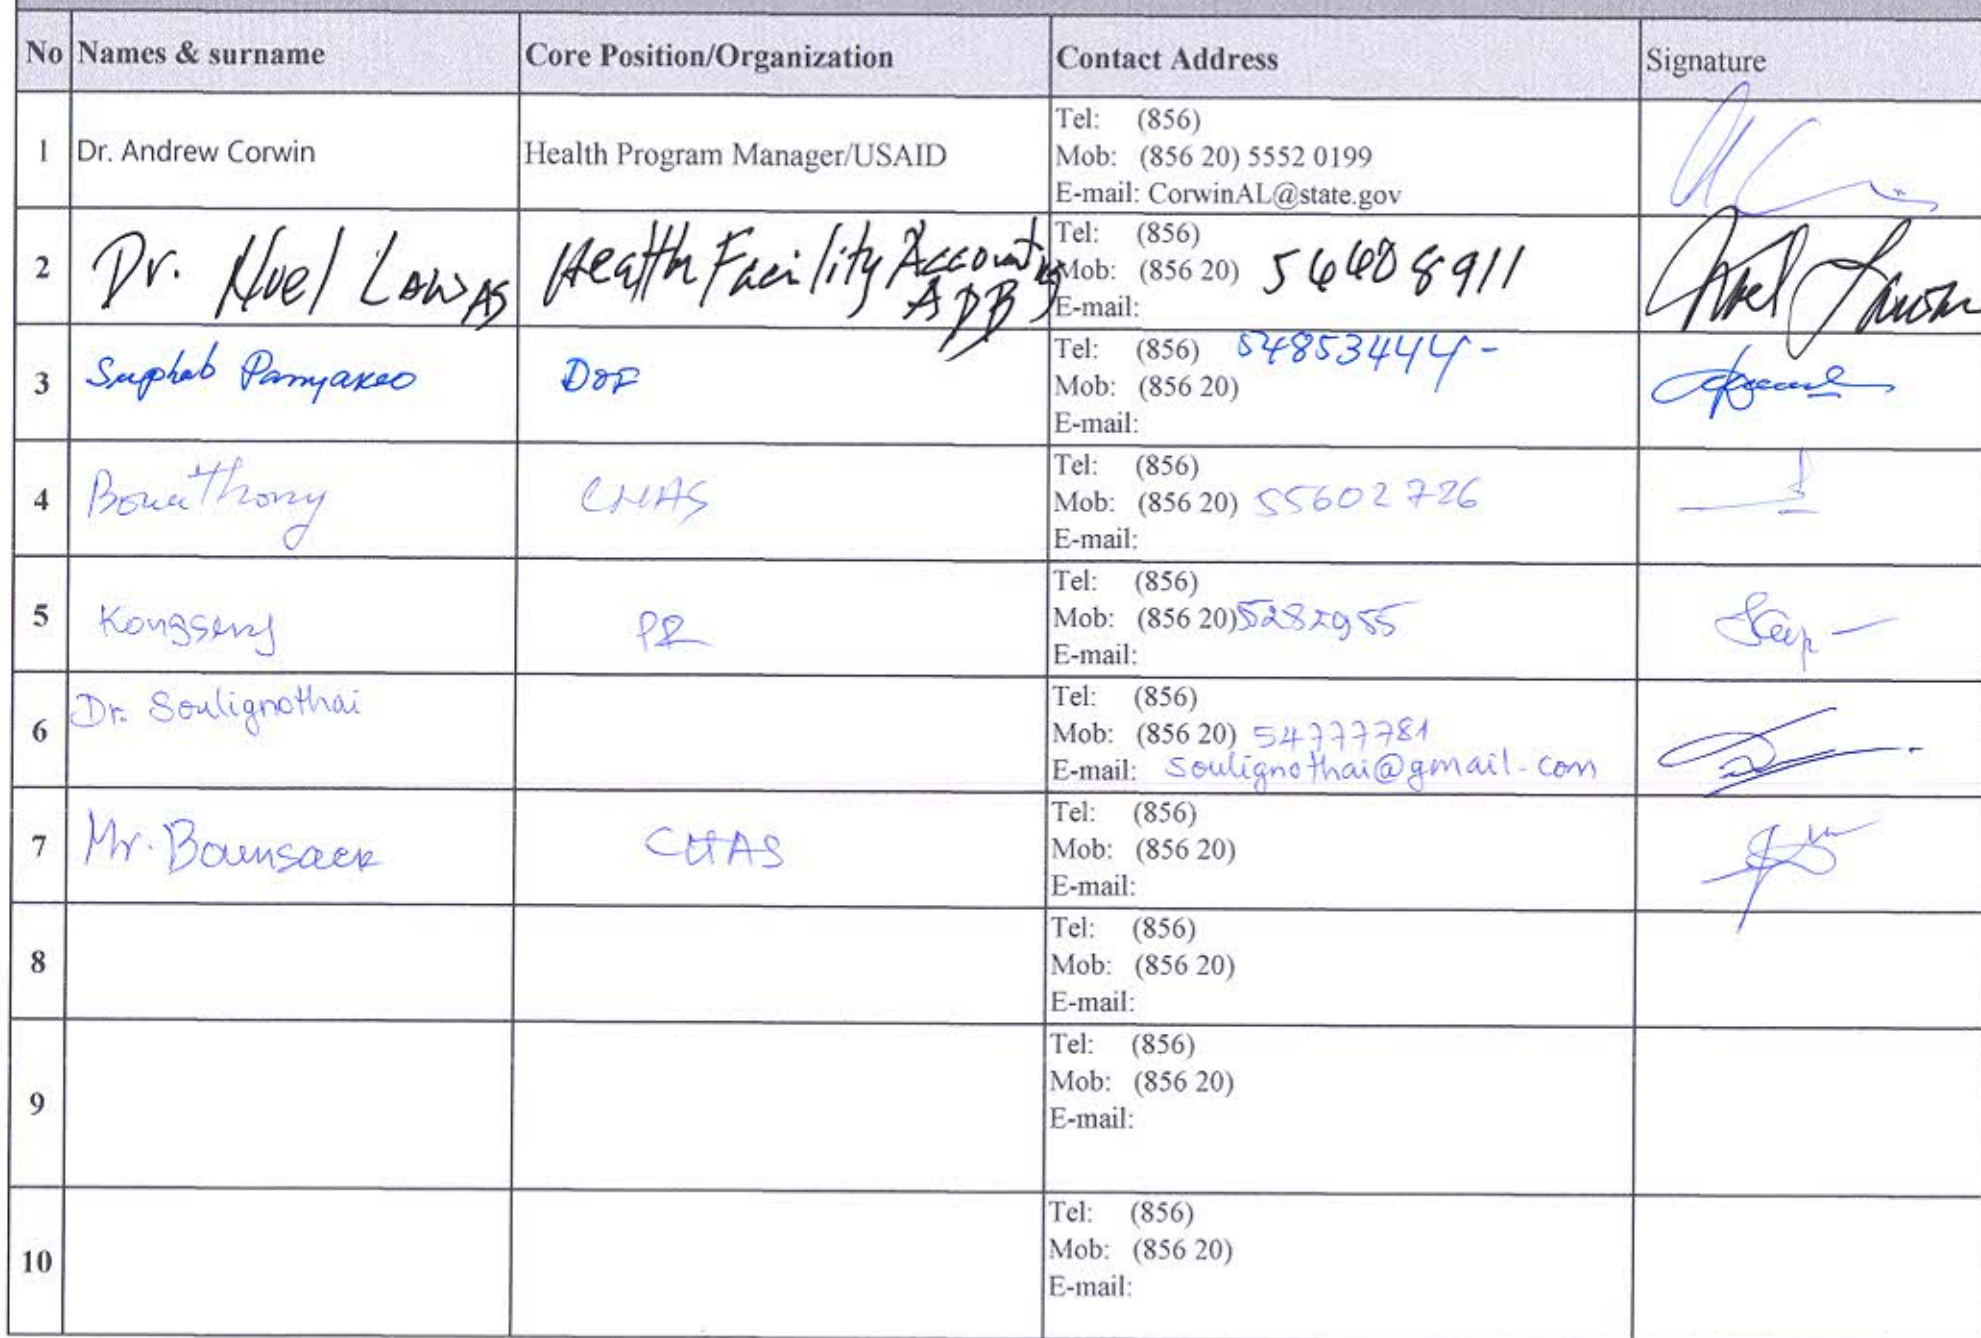 No Names & surname Core Position/Organization Contact Address Signature
1 Dr. Andrew Corwin Health Program Manager/USAID
Tel: (856)
Mob: (856 20) 5552 0199
E-mail: CorwinAL@state.gov
2 Dr. Noel Lawas Health Facility Accounting ADB
Tel: (856)
Mob: (856 20) 56608911
E-mail:
3 Suphab Panyakeo DOF
Tel: (856) 54853444-
Mob: (856 20)
E-mail:
4 Bouathong CHAS
Tel: (856)
Mob: (856 20) 55602726
E-mail:
5 Kongseng PR
Tel: (856)
Mob: (856 20)
E-mail:
6 Dr. Soulignothai
Tel: (856)
Mob: (856 20) 54777781
E-mail: soulignothai@gmail.com
7 Mr. Bounsack CHAS
Tel: (856)
Mob: (856 20)
E-mail:
8
Tel: (856)
Mob: (856 20)
E-mail:
9
Tel: (856)
Mob: (856 20)
E-mail:
10
Tel: (856)
Mob: (856 20)
E-mail: